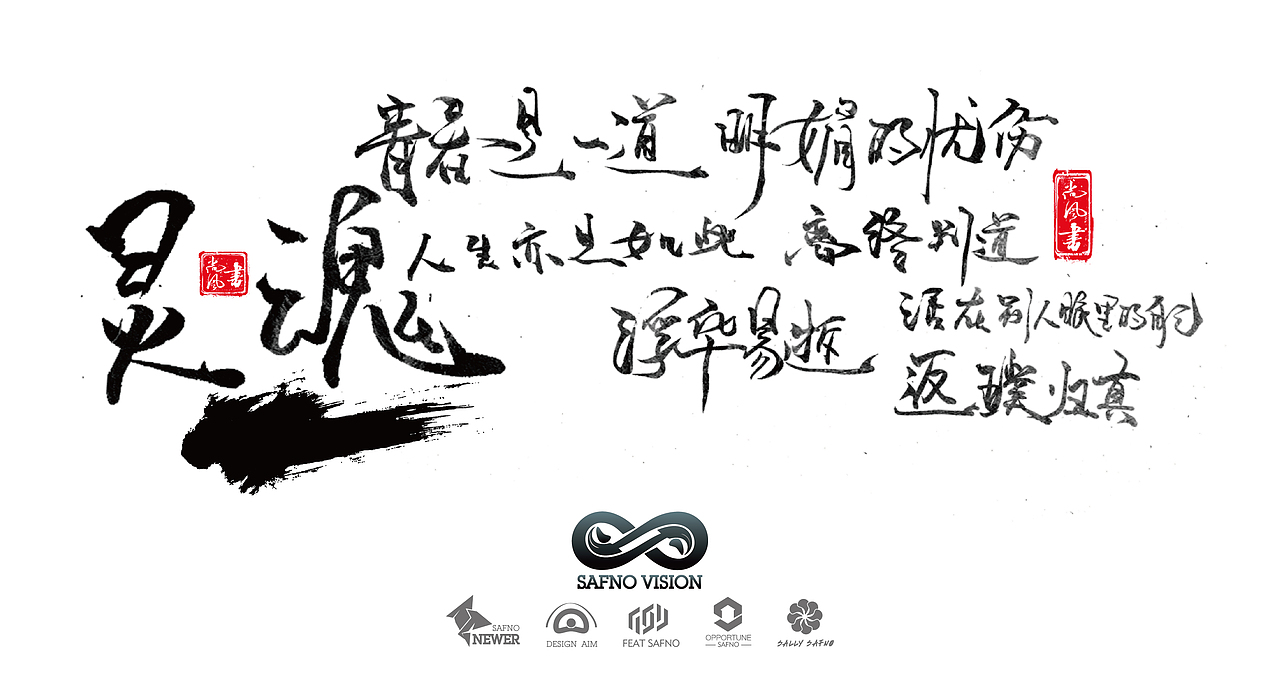 青春是一道 明媚的忧伤
灵魂
尚风书
人生亦是如此
尚风书
浮华易拆
活在别人眼里的
返璞归真
SAFNO VISION
SAFNO
NEWER
DESIGN AIM
FEAT SAFNO
OPPORTUNE
SAFNO
SALLY SAFNO